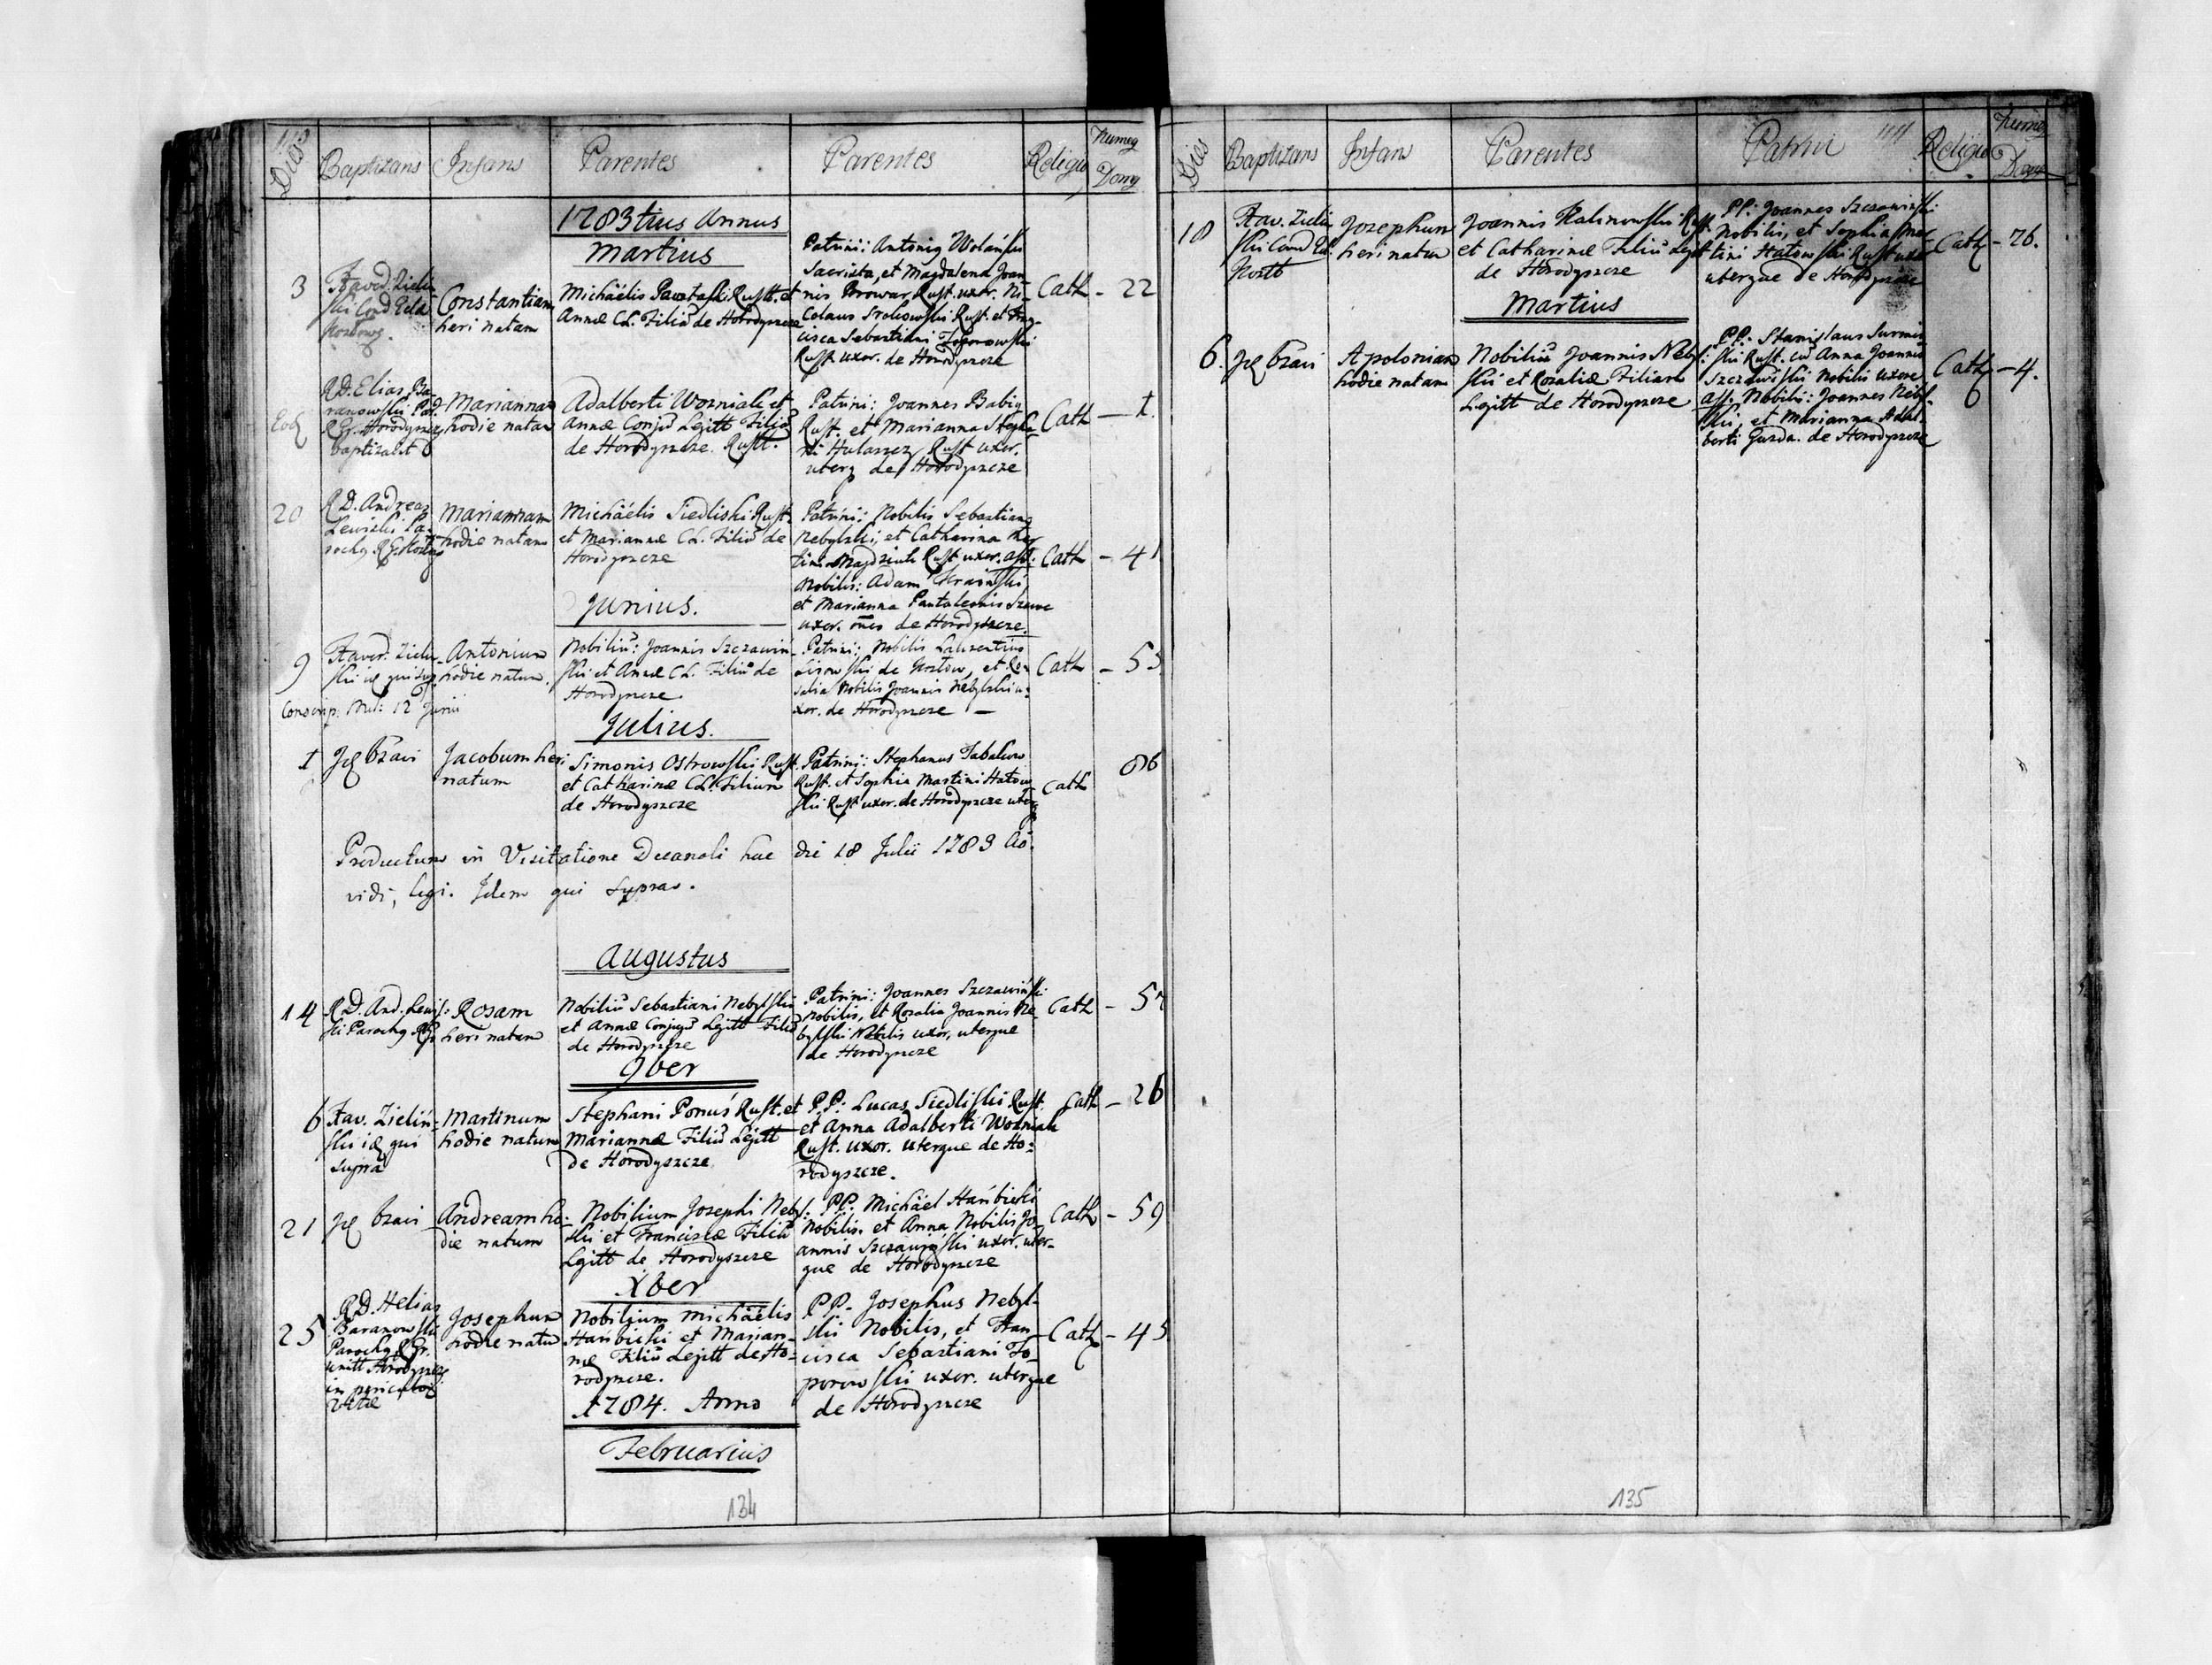 Dies Baptizans Infans Parentes Parentes Religio Numerq Domq
1783 tius Annus
Martius
3
Constantiam
heri natam
Annæ CL. Filiã de Horodyszcze
Patrini: Antoniq Wolański
Sacrista, et Magdalena Joan
nis Browar Rust. uxor. Ni-
colaus Srokowski Rust. et Fran-
cisca Sebastiani Toporowski
Rust. uxor. de Horodyszcze
Cath - 22
R.D. Elias Ba-
ranowski Par.
R.G. Horodyszcz
baptizavit
Mariannam
hodie natam
Adalberti Wozniak et
Annæ Conjũ Legitt Filiã
de Horodyszcze. Rustt.
Patrini: Joannes Babiy
Rust. et Marianna Stepha-
ni Hulaszez Rust uxor.
uterq de Horodyszcze
Cath - 1.
20
R.D. Andreas
Lewicki Pa-
rochq
Mariannam
hodie natam
Michäelis Siedliski Rust.
et Mariannæ CL. Filiã de
Horodyszcze
Patrini: Nobilis Sebastianq
Nebylski, et Catharina Mar
tini Magdziak Rust uxor. ass:
Nobilis: Adam Kraiński
et Marianna Pantaleonis Szewc
uxor. oẽs de Horodyszcze.
Cath - 41
Junius.
9
Faver. Zieliń-
ski uq qui sup
Antonium
hodie natum.
Nobiliũ: Joannis Szczawiń-
ski et Annæ CL. Filiũ de
Horodyszcze.
Patrini: Nobilis Laurentius
Lisowski de Kozłow, et Ro-
salia Nobilis Joannis Nebylski u-
xor. de Horodyszcze -
Cath - 53
Conscrip. Mil: 12 Junii
Julius.
1
Jq bzavi
Jacobum heri
natum
Simonis Ostrowski Rust.
et Catharinæ CL. Filium
de Horodyszcze
Patrini: Stephanus
Rust. et Sophia Martini Hatow
ski Rust uxor. de Horodyszcze uterq
Cath
86
Productum in Visitatione Decanali hac die 18 Julii 1783 Aõ.
vidi, legi. Idem qui supra.
Augustus
14
R.D. And. Lewic-
ki Parochq RG
Rosam
heri natam
Nobiliũ Sebastiani Nebylski
et Annæ Conjugũ Legitt Filiã
de Horodyszcze
Patrini: Joannes Szczawiński
nobilis, et Rosalia Joannis Ne
bylski Nobilis uxor, uterque
de Horodyszcze
Cath - 57
9ber
6
Xav. Zieliń-
ski iq qui
supra
Martinum
hodie natum
Stephani Ponuś Rust. et
Mariannæ Filiũ Legitt
de Horodyszcze.
P.P: Lucas Siedliski Rust.
et Anna Adalberti Wozniak
Rust. uxor. uterque de Ho-
rodyszcze.
Cath - 26
21
Jq bzavi
Andream ho-
die natum
Nobilium Josephi Neby-
lski et Franciscæ Filiũ
Legitt de Horodyszcze
P.P. Michäel Hańbicki
Nobilis. et Anna Nobilis Jo-
annis Szczawiński uxor. uter-
que de Horodyszcze
Cath - 59
Xber
25
R.D. Helias
Baranowski
Parochq R. Gr.
unitt Horodyszcz
in periculo
vitæ
Josephum
hodie natũ
Nobilium Michäelis
Hańbicki et Marian-
næ Filiũ Legitt de Ho-
rodyszcze.
P.P. Josephus Nebyl-
ski Nobilis, et Fran-
cisca Sebastiani To-
porowski uxor. uterque
de Horodyszcze
Cath - 45
1784. Anno
Februarius
134
Dies Baptizans Infans Parentes Patrini Religio Numerq Domq
18
Xav. Zieliń
ski
Jozephum
heri natum
Joannis Kalinowski Rust.
et Catharinæ Filiũ Legitt
de Horodyszcze
PP: Joannes Szczawiński
Nobilis, et Sophia Mar
tini Hatowski Rust uxor
uterque de Horodyszcze
Cath - 76.
Martius
6.
Jq bzavi
Apoloniam
hodie natam
Nobiliũ Joannis Neby-
lski et Rozaliæ Filiam
Legitt de Horodyszcze
PP: Stanislaus Surmiń
ski Rust. cũ Anna Joannis
Szczawiński Nobilis uxore
ass. Nobilis: Joannes Nebyl-
ski, et Marianna Adal-
berti Guzda. de Horodyszcze
Cath - 4.
135